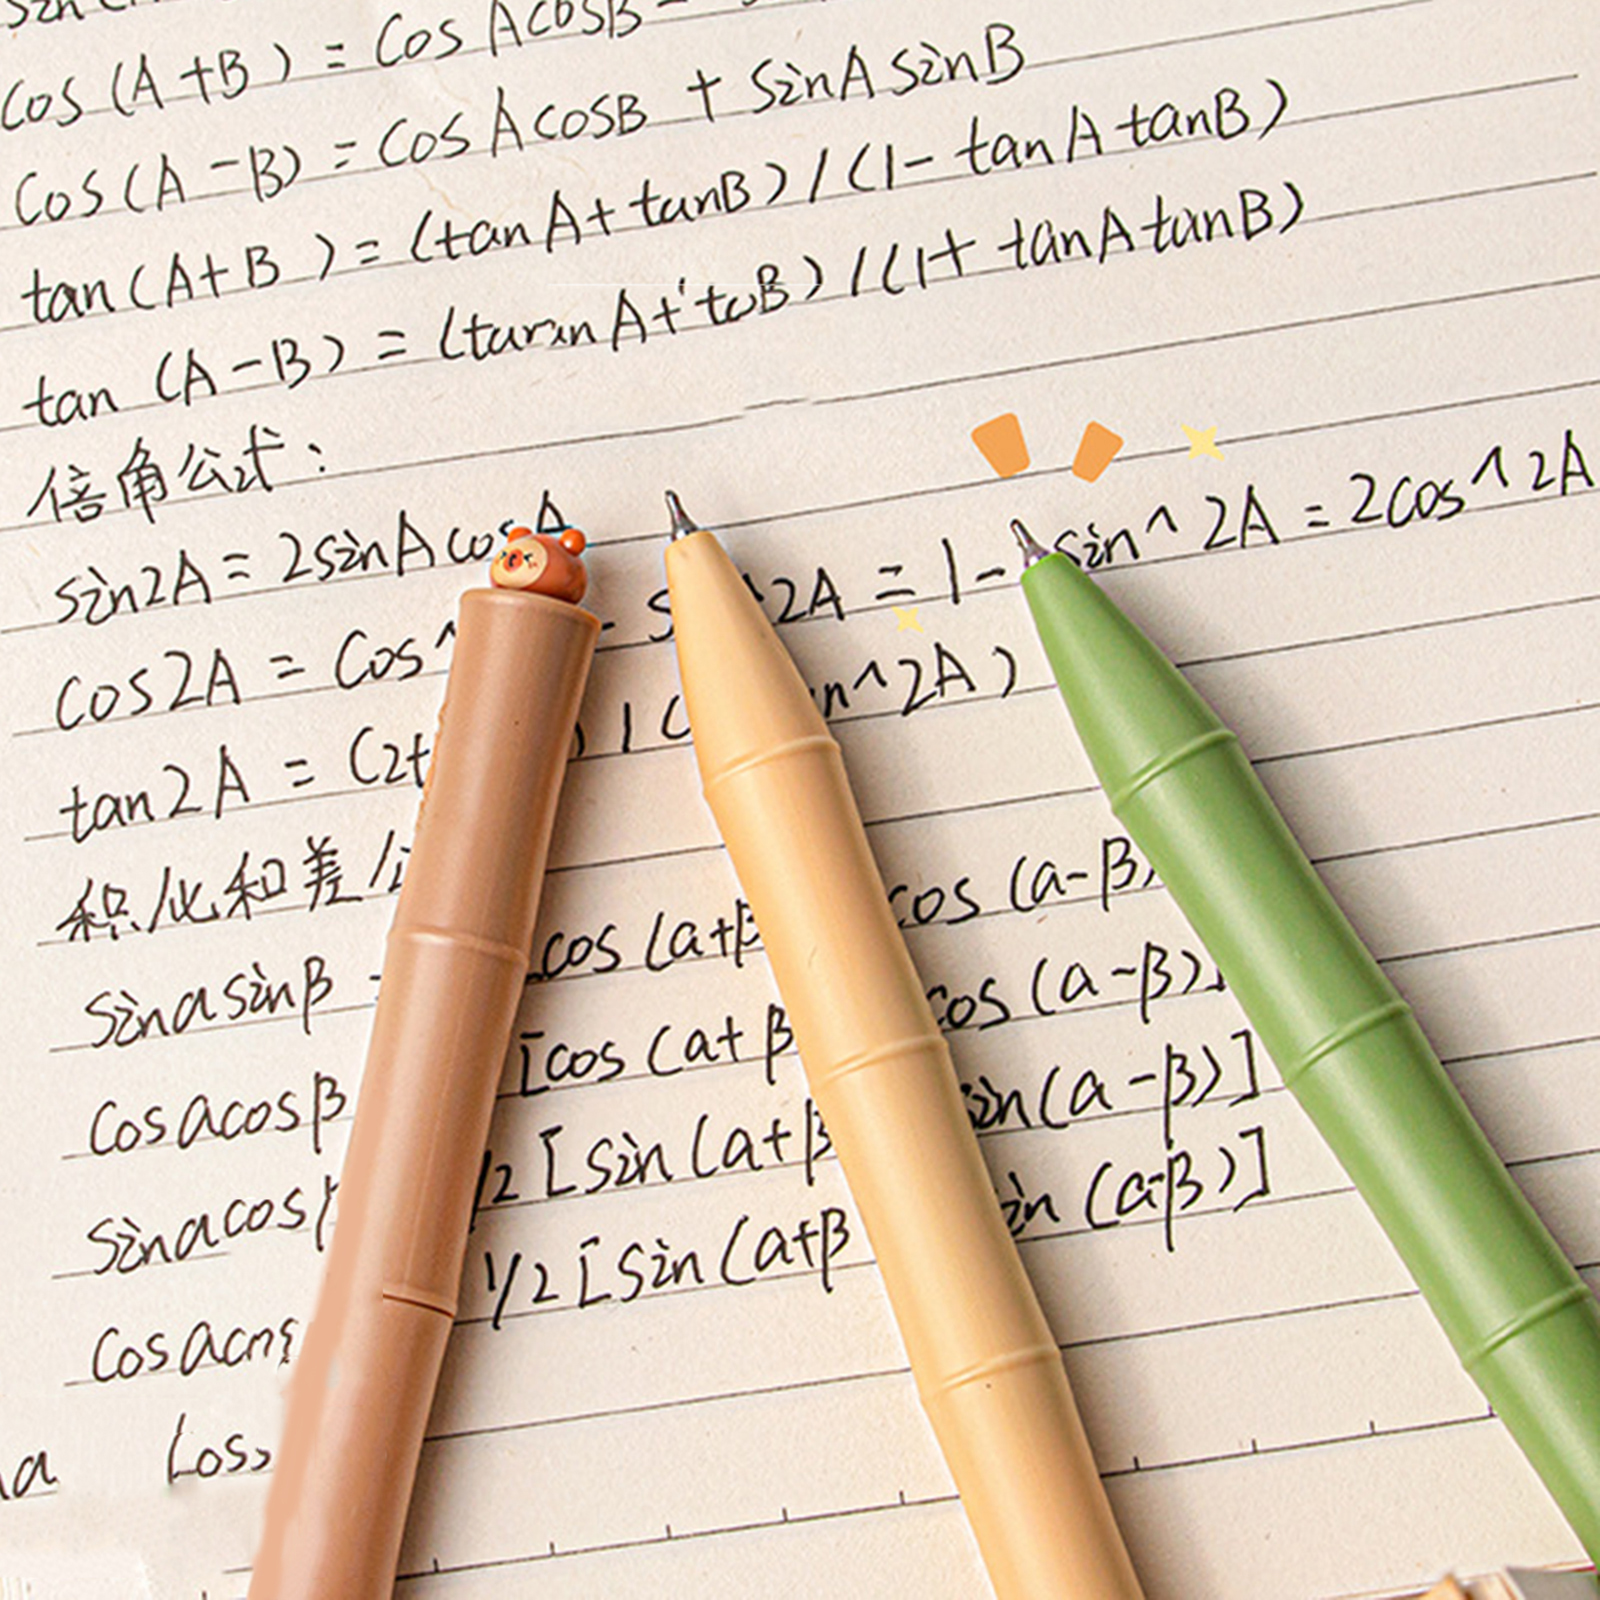 cos (A+B) = cos AcosB -
cos (A-B) = cos AcosB + sinA sinB
tan (A+B) = (tan A+ tanB) / (1- tan A tanB)
tan (A-B) = A+ B) / (1+ tanA tanB)
倍角公式:
sin2A = 2sinA cos A
cos2A = cos^ - s ^2A = 1- sin^2A = 2cos^2A
tan2A = (2t ) / ( n^2A)
积化和差公
sinasinβ cos (a+β cos (a-β)
cosacosβ [cos (a+β cos (a-β)]
sinacos 1/2 [sin (a+β sin(a-β)]
cosa 1/2 [sin (a+β sin (a-β)]